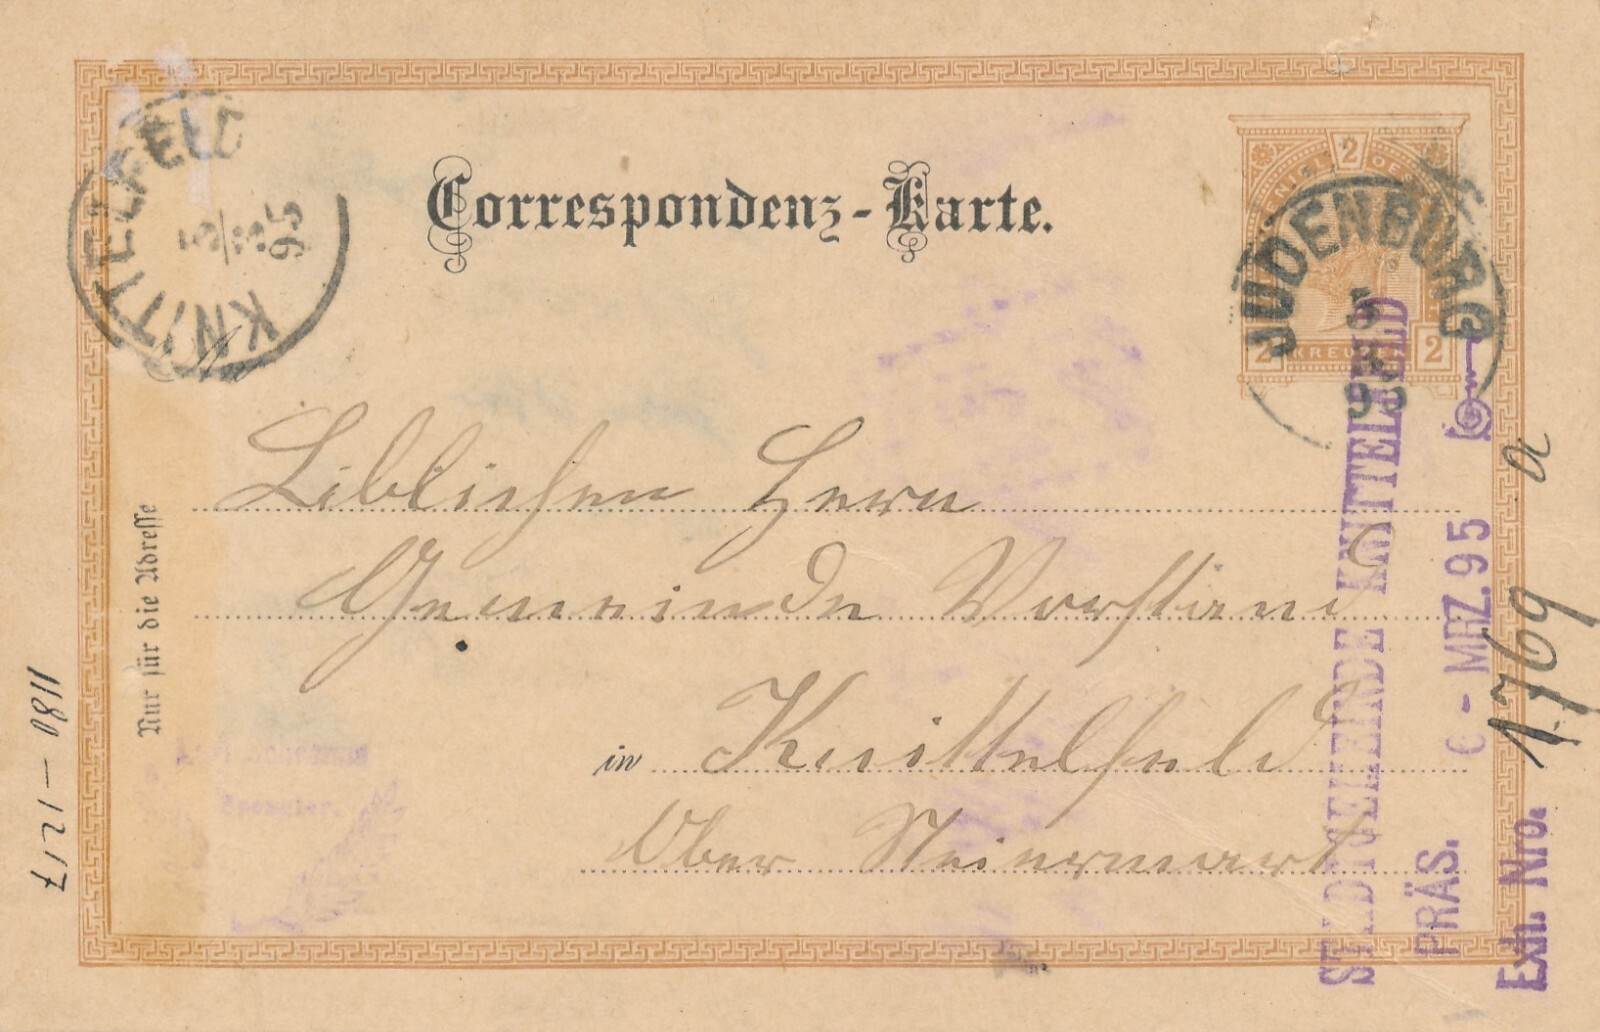 KNITTELFELD
5/3
95
Correspondenz-Karte.
2
2 KREUZER 2
JUDENBURG
5
95
Liblichen Herrn
Gemeinde Vorstand
in Knittelfeld
Ober Steiermark
Nur für die Adresse
1180 – 1217
STADTGEMEINDE KNITTELFELD
PRÄS. 6 - MRZ. 95
Exh. Nro. 1769 a